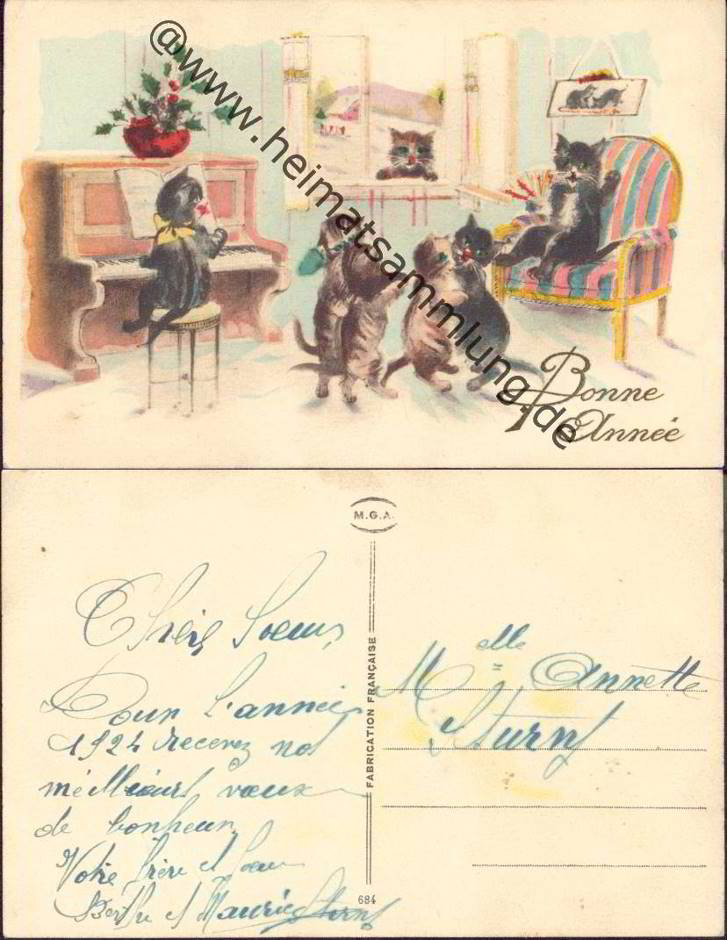 @www.heimatsammlung.de
Bonne
Année
M.G.A.
Chère Soeurs
Pour l'année
1924 recevez nos
meilleurs voeux
de bonheur
Votre frère et soeur
Berthe et Maurice Sturny
FABRICATION FRANÇAISE
684
Melle Annette
Sturny